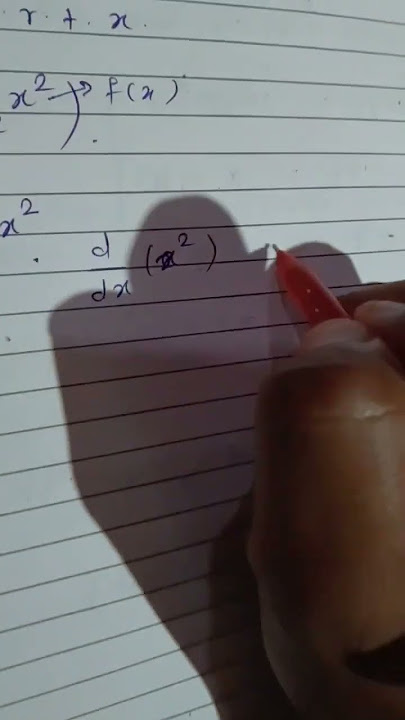 r. t. x.
x² → f(x)
x² . d/dx (x²)